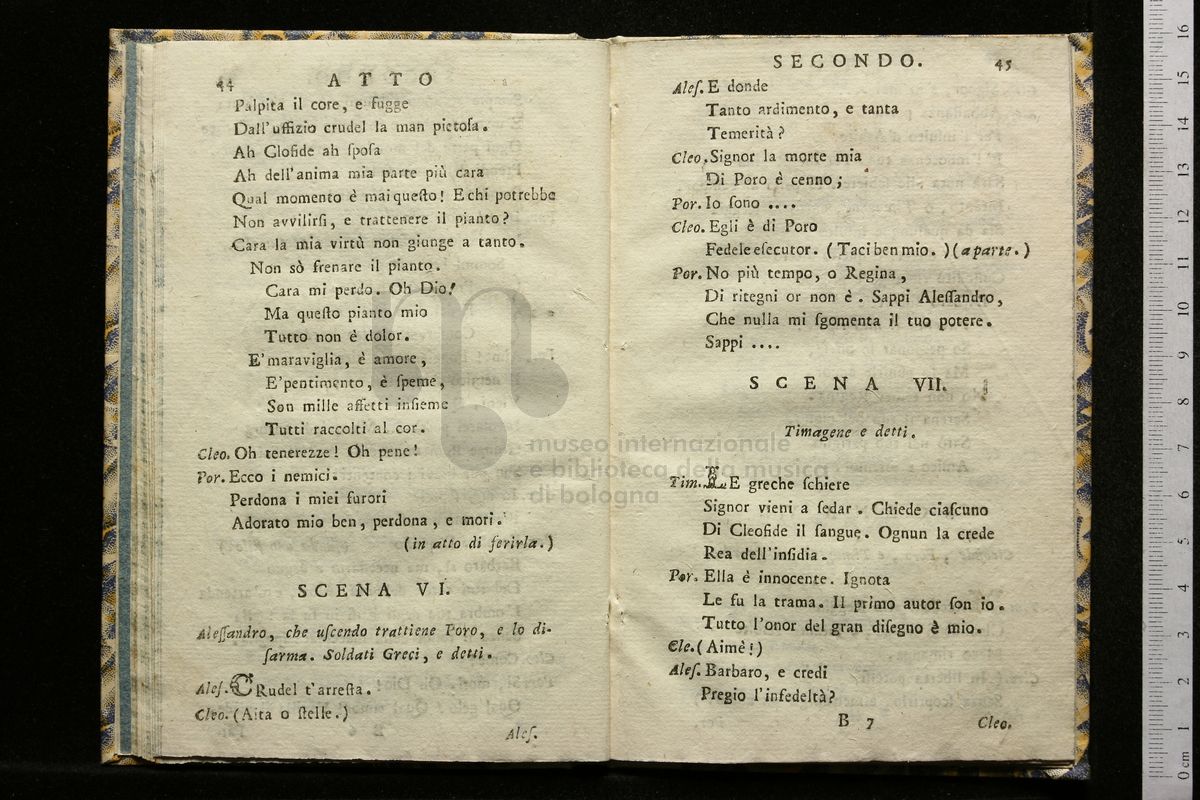 44 ATTO
Palpita il core, e fugge
Dall'uffizio crudel la man pietoſa.
Ah Cloſide ah ſpoſa
Ah dell'anima mia parte più cara
Qual momento è mai queſto! E chi potrebbe
Non avvilirſi, e trattenere il pianto?
Cara la mia virtù non giunge a tanto.
Non sò frenare il pianto.
Cara mi perdo. Oh Dio!
Ma queſto pianto mio
Tutto non è dolor.
E' maraviglia, è amore,
E' pentimento, è ſpeme,
Son mille affetti inſieme
Tutti raccolti al cor.
Cleo. Oh tenerezze! Oh pene!
Por. Ecco i nemici.
Perdona i miei furori
Adorato mio ben, perdona, e mori.
(in atto di ferirla.)
SCENA VI.
Aleſſandro, che uſcendo trattiene Poro, e lo di-
ſarma. Soldati Greci, e detti.
Aleſ. CRudel t'arreſta.
Cleo. (Aita o ſtelle.)
Aleſ.
SECONDO. 45
Aleſ. E donde
Tanto ardimento, e tanta
Temerità?
Cleo. Signor la morte mia
Di Poro è cenno;
Por. Io ſono ....
Cleo. Egli è di Poro
Fedele eſecutor. (Taci ben mio.) (a parte.)
Por. No più tempo, o Regina,
Di ritegni or non è. Sappi Aleſſandro,
Che nulla mi ſgomenta il tuo potere.
Sappi ....
SCENA VII.
Timagene e detti.
Tim. LE greche ſchiere
Signor vieni a ſedar. Chiede ciaſcuno
Di Cleofide il ſangue. Ognun la crede
Rea dell'inſidia.
Por. Ella è innocente. Ignota
Le fu la trama. Il primo autor ſon io.
Tutto l'onor del gran diſegno è mio.
Cle. (Aimè!)
Aleſ. Barbaro, e credi
Pregio l'infedeltà?
B 7 Cleo.
museo internazionale
e biblioteca della musica
di bologna
0 cm 1 2 3 4 5 6 7 8 9 10 11 12 13 14 15 16